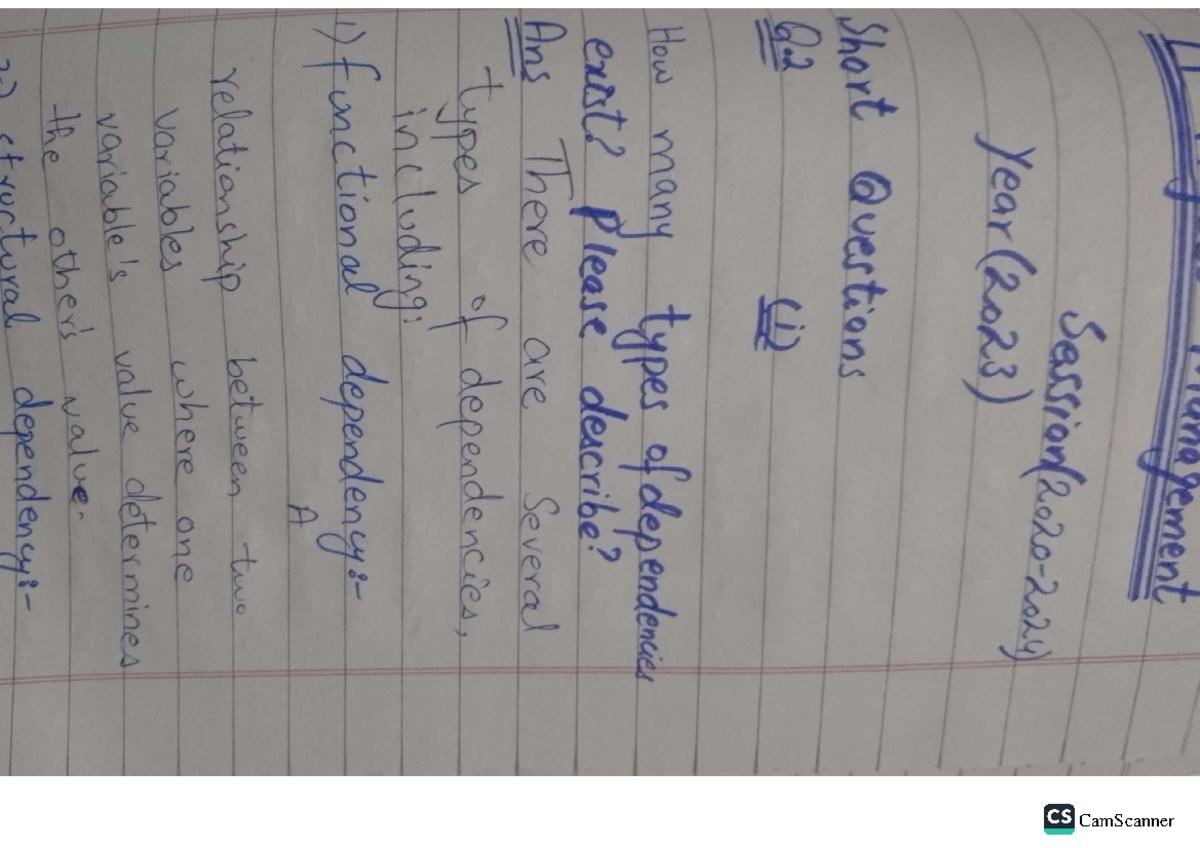 Management
Session(2020-2024)
Year(2023)
Short Questions
Q.2 (i)
How many types of dependencies
exist? Please describe?
Ans There are Several
types of dependencies,
including:
1) functional dependency:-
A
relationship between two
variables where one
variable's value determines
the other's value.
2) structural dependency:-
CS CamScanner